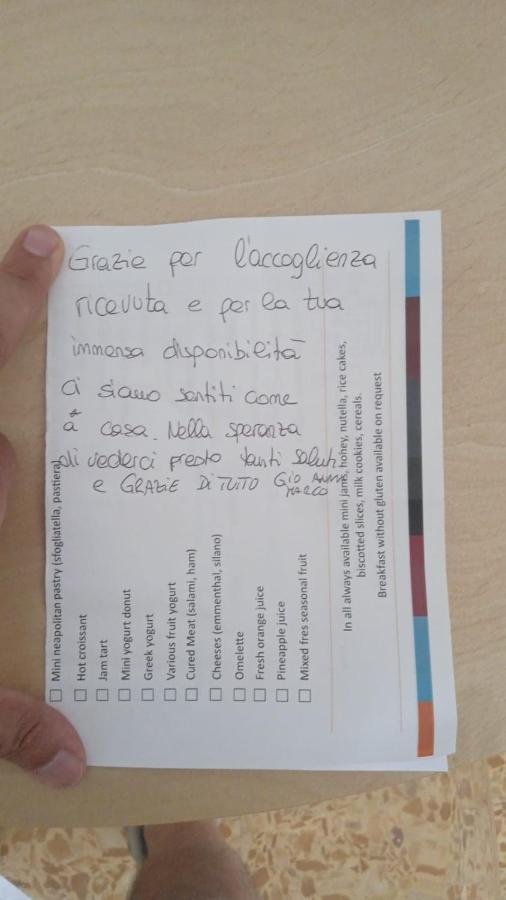 Grazie per l'accoglienza
ricevuta e per la tua
immensa disponibilità
ci siamo sentiti come
a casa. Nella speranza
di vederci presto tanti saluti
e GRAZIE DI TUTTO GIO ANNA
MARCO
Mini neapolitan pastry (sfogliatella, pastiera)
Hot croissant
Jam tart
Mini yogurt donut
Greek yogurt
Various fruit yogurt
Cured Meat (salami, ham)
Cheeses (emmenthal, silano)
Omelette
Fresh orange juice
Pineapple juice
Mixed fres seasonal fruit
In all always available mini jams, honey, nutella, rice cakes,
biscotted slices, milk cookies, cereals.
Breakfast without gluten available on request